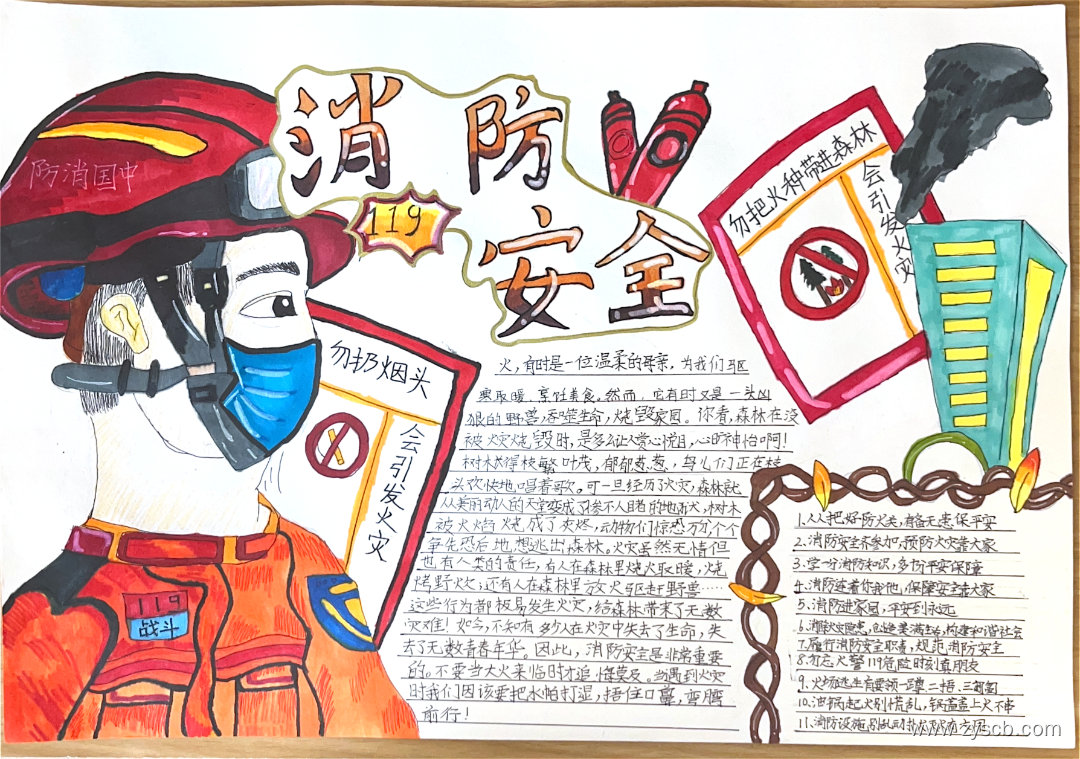 消防
安全
119
防消国中
勿把火种带进森林
会引发火灾
勿扔烟头
会引发火灾
119
战斗
火,有时是一位温柔的母亲,为我们驱
寒取暖、烹饪美食。然而,它有时又是一头凶
狠的野兽,吞噬生命,烧毁家园。你看,森林在没
被火灾烧毁时,是多么让人赏心悦目,心旷神怡啊!
树木长得枝繁叶茂,郁郁葱葱,鸟儿们正在枝
头欢快地唱着歌。可一旦经历了火灾,森林就
从美丽动人的天堂变成了惨不人目者的地狱,树木
被火焰烧成了灰烬,动物们惊恐万分,个个
争先恐后地想逃出森林。火灾虽然无情但
也有人类的责任,有人在森林里烧火取暖,烧
烤野炊;还有人在森林里放火驱赶野兽……
这些行为都极易发生火灾,给森林带来了无数
灾难!如今,不知有多少人在火灾中失去了生命,失
去了无数青春年华。因此,消防安全是非常重要
的。不要当大火来临时才追悔莫及。当遇到火灾
时我们因该要把水帕打湿,捂住口鼻,弯腰
前行!
1.人人把好防火关,有备无患保平安
2.消防安全齐参加,预防火灾靠大家
3.学一分消防知识,多份平安保障
4.消防连着你我他,保障安全靠大家
5.消防进家园,平安到永远
6.消除火灾隐患,创造美满生活,构建和谐社会
7.履行消防安全职责,规范消防安全
8.勿忘火警119危险时刻真朋友
9.火场逃生有要领一蹲二捂三匍匐
10.油锅起火别慌乱,锅盖盖上火不串
11.消防设施别乱动
www.zyscb.com